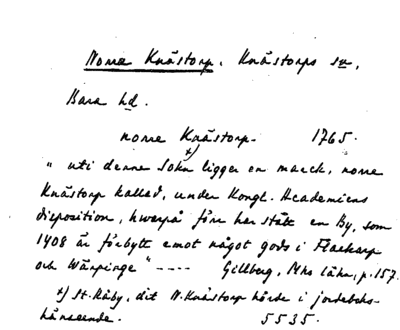 Norre Knästorp. Knästorps sn,
Bara hd.
norre Knästorp. 1765.
x)
"uti denne Sokn ligger en marck, norre
Knästorp kallad, under Kongl. Academiens
disposition, hwarpå förr har stått en By, som
1408 är förbytt emot något gods i Flackarp
och Wärpinge" ---- Gillberg, Mhs Lähn, p. 157.
x) St. Råby, dit N. Knästorp hörde i jordeboks-
hänseende. 5535.